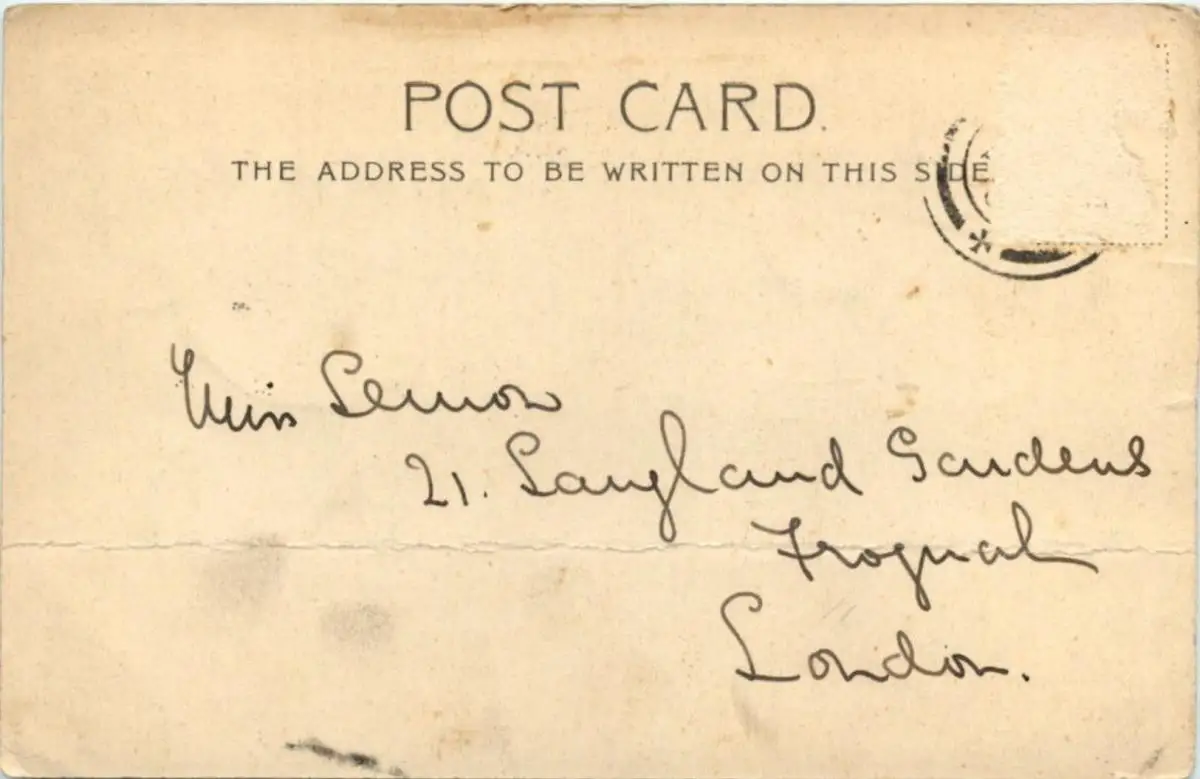 POST CARD.
THE ADDRESS TO BE WRITTEN ON THIS SIDE
Miss Lemon
21. Langland Gardens
Frognal
London.